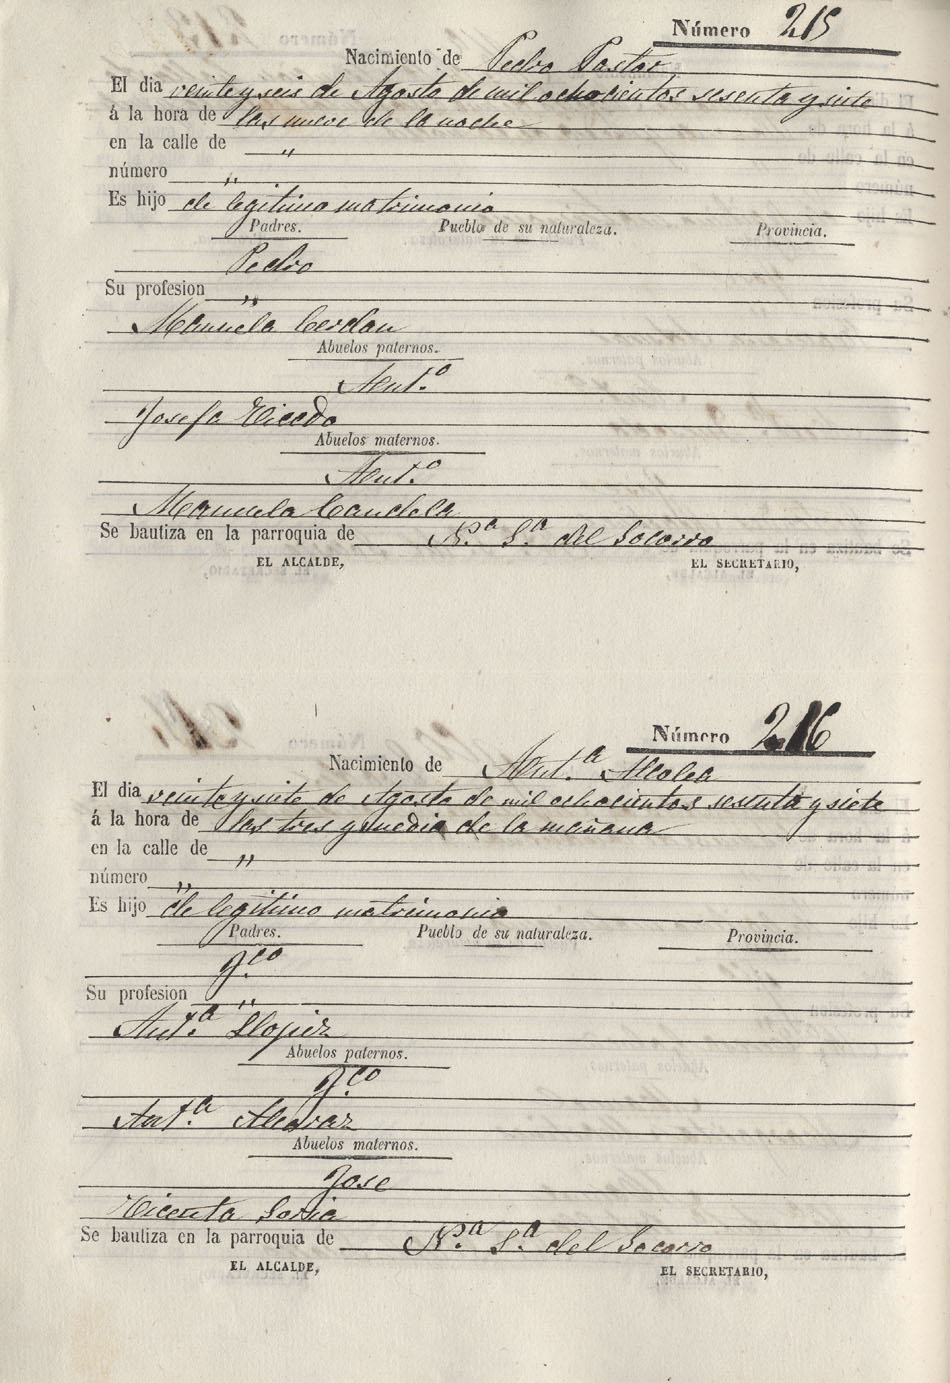 Número 215
Nacimiento de Pedro Pastor
El dia veinte y seis de Agosto de mil ochocientos sesenta y siete
á la hora de las nueve de la noche
en la calle de "
número "
Es hijo de legitimo matrimonio
Padres. Pueblo de su naturaleza. Provincia.
Pedro
Su profesion "
Manuela Cerdan
Abuelos paternos.
Ant.º
Josefa Vicedo
Abuelos maternos.
Ant.º
Manuela Candela
Se bautiza en la parroquia de N.ª S.ª del Socorro
EL ALCALDE, EL SECRETARIO,
Número 216
Nacimiento de Ant.ª Alcolea
El dia veinte y siete de Agosto de mil ochocientos sesenta y siete
á la hora de las tres y media de la mañana
en la calle de "
número "
Es hijo de legitimo matrimonio
Padres. Pueblo de su naturaleza. Provincia.
F.co
Su profesion "
Ant.ª Llopiz
Abuelos paternos.
F.co
Ant.ª Alcaraz
Abuelos maternos.
Jose
Vicenta Soria
Se bautiza en la parroquia de N.ª S.ª del Socorro
EL ALCALDE, EL SECRETARIO,